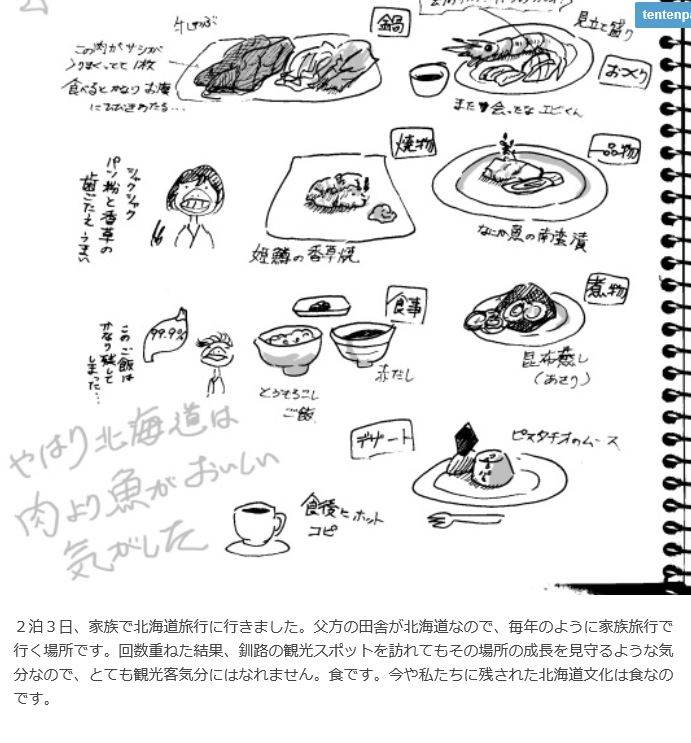 tentenpa
牛しゃぶ
鍋
この肉がサシが
入りまくってて1枚
食べるとかなりお腹
見立て盛り
おつくり
また♥会ったなエビくん
焼物
一品物
シャクシャク
パン粉と香草の
歯ごたえ うまい
姫鱒の香草焼
なにか魚の南蛮漬
煮物
食事
99.9%
このご飯は
かなり残して
しまった…
とうもろこし
ご飯
赤だし
昆布蒸し
(あさり)
デザート
ピスタチオのムース
食後ヒホット
コピ
やはり北海道は
肉より魚がおいしい
気がした
２泊３日、家族で北海道旅行に行きました。父方の田舎が北海道なので、毎年のように家族旅行で
行く場所です。回数重ねた結果、釧路の観光スポットを訪れてもその場所の成長を見守るような気
分なので、とても観光客気分にはなれません。食です。今や私たちに残された北海道文化は食なの
です。